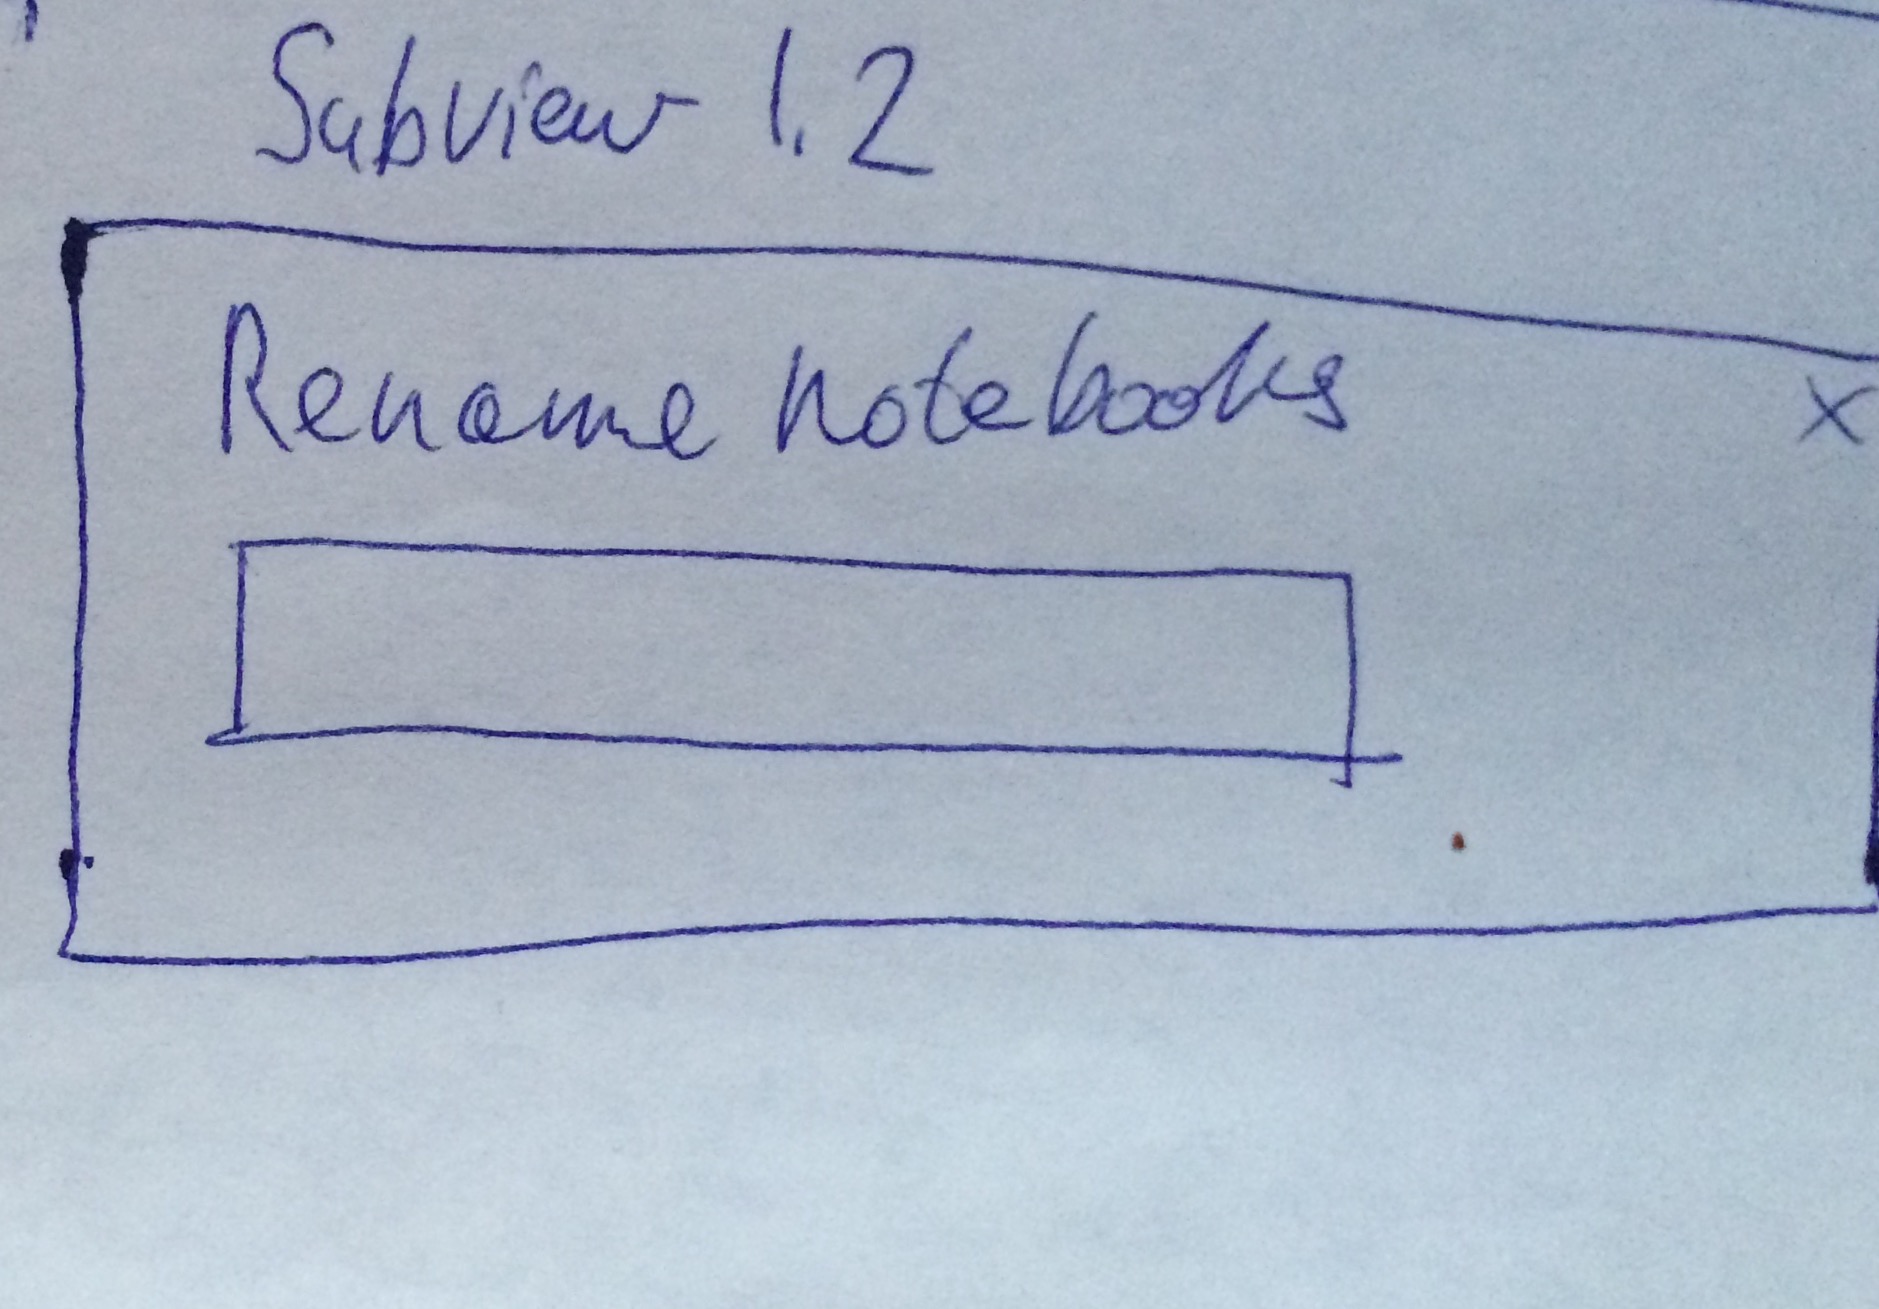 Subview 1.2
Rename notebooks
x